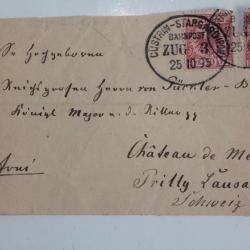 CÜSTRIN-STARGARD
BAHNPOST
ZUG 3
25 10 95
Sr Hochgeboren
Reichsgrafen Herrn von Pückler-B
Königl Major a. d. Ritter pp
Château de Me
Prilly Lausa
Schweiz